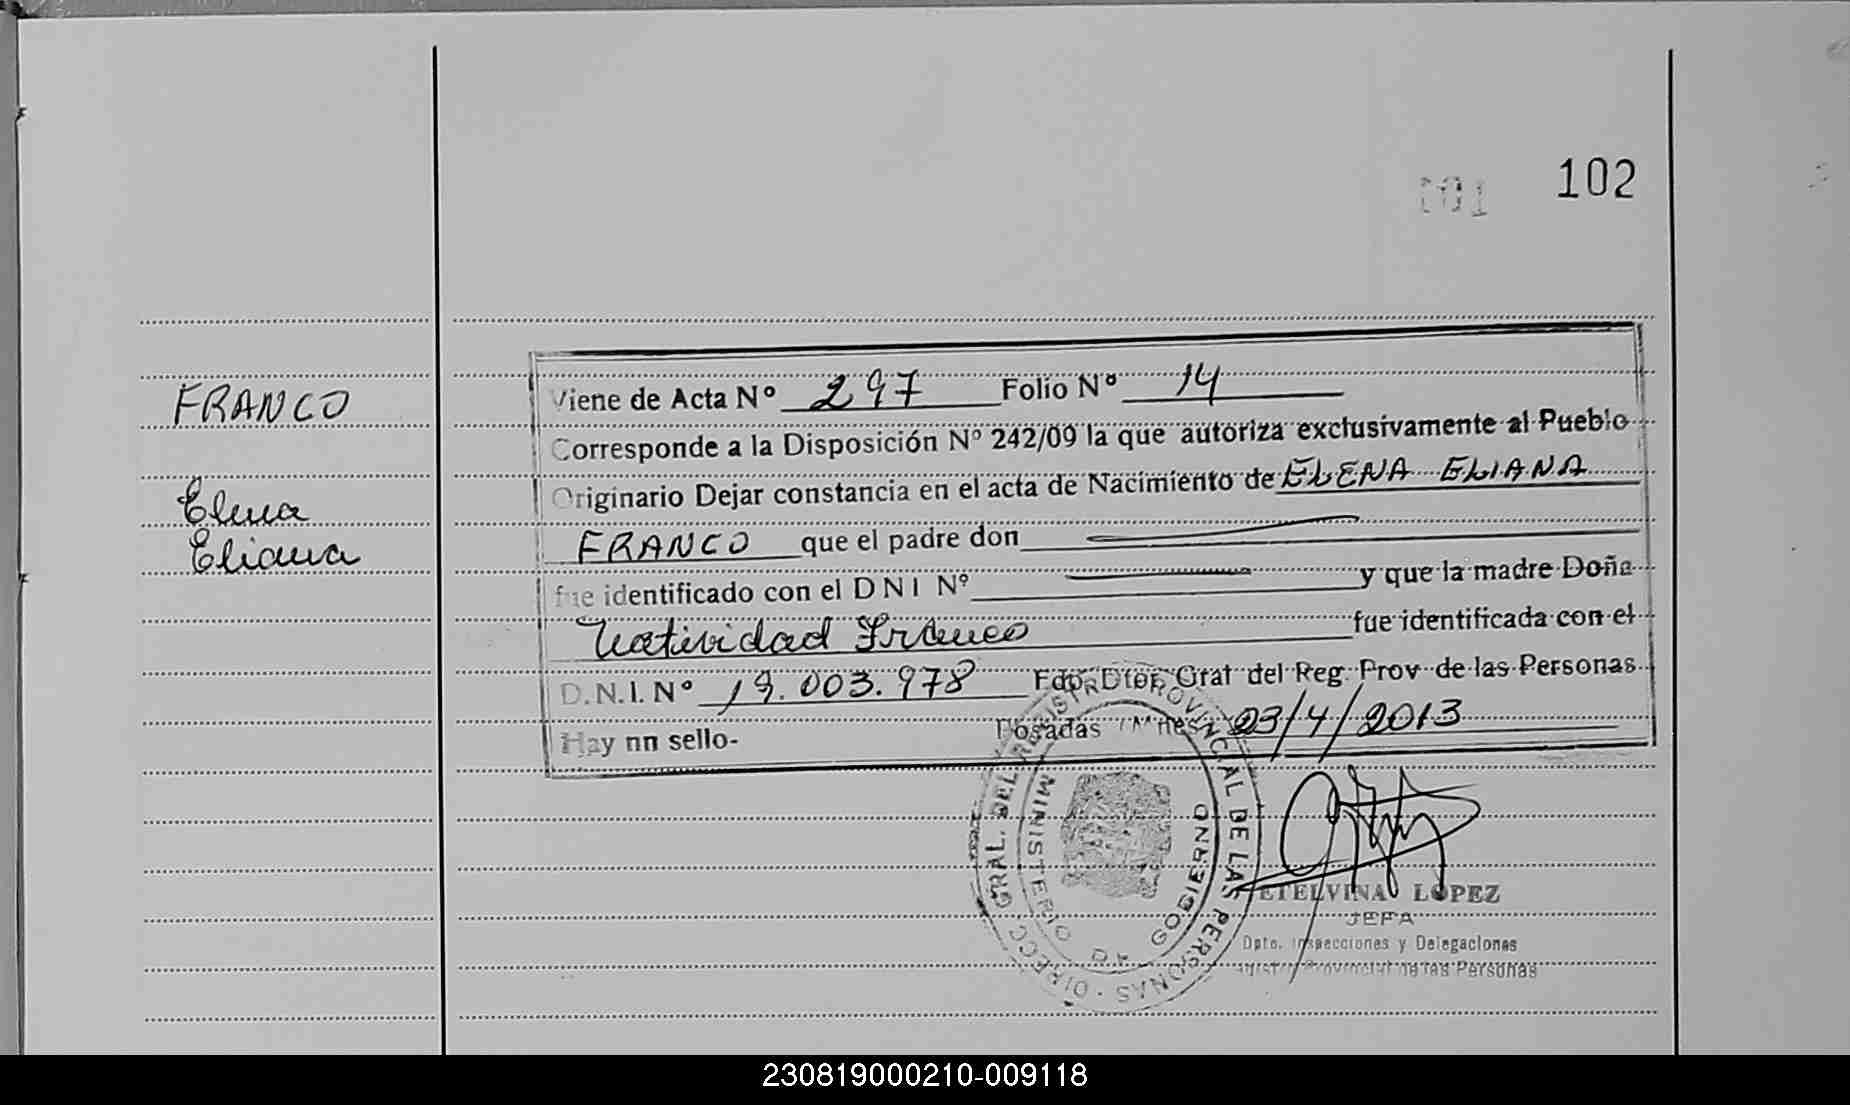 102
FRANCO
Elena
Eliana
Viene de Acta Nº 297 Folio Nº 14
Corresponde a la Disposición Nº 242/09 la que autoriza exclusivamente al Pueblo
Originario Dejar constancia en el acta de Nacimiento de ELENA ELIANA
FRANCO que el padre don
fue identificado con el DNI Nº y que la madre Doña
Natividad Franco fue identificada con el
D.N.I. Nº 19.003.978 Fdo. Dtor. Gral del Reg. Prov de las Personas
Hay nn sello- Posadas Mnes 23/4/2013
DIRECC. GRAL. DEL REGISTRO PROVINCIAL DE LAS PERSONAS
MINISTERIO DE GOBIERNO
ETELVINA LOPEZ
JEFA
Dpto. Inspecciones y Delegaciones
Registro Provincial de las Personas
230819000210-009118